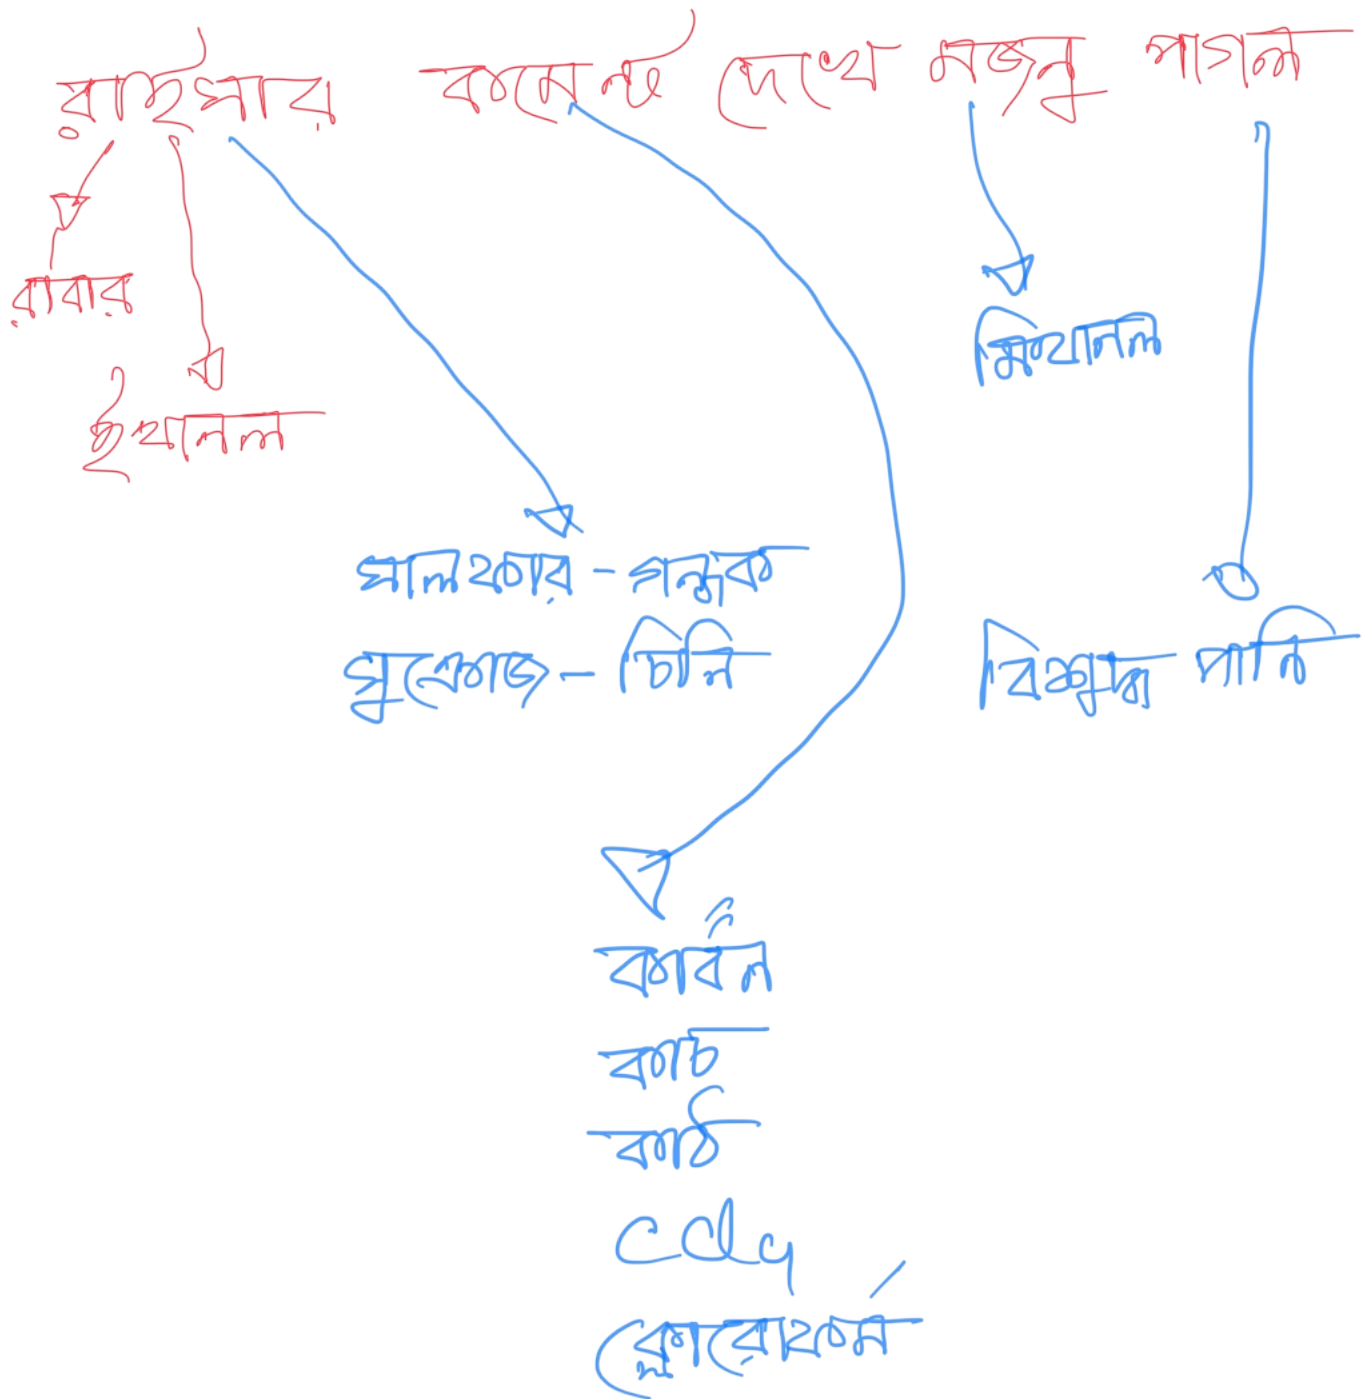 রাইসার কমেন্ট দেখে মজনু পাগল
রাবার
ইথানল
মিথানল
সালফার - গন্ধক
সুক্রোজ - চিনি
বিশুদ্ধ পানি
কার্বন
কাচ
কাঠ
CCl4
ক্লোরোফর্ম